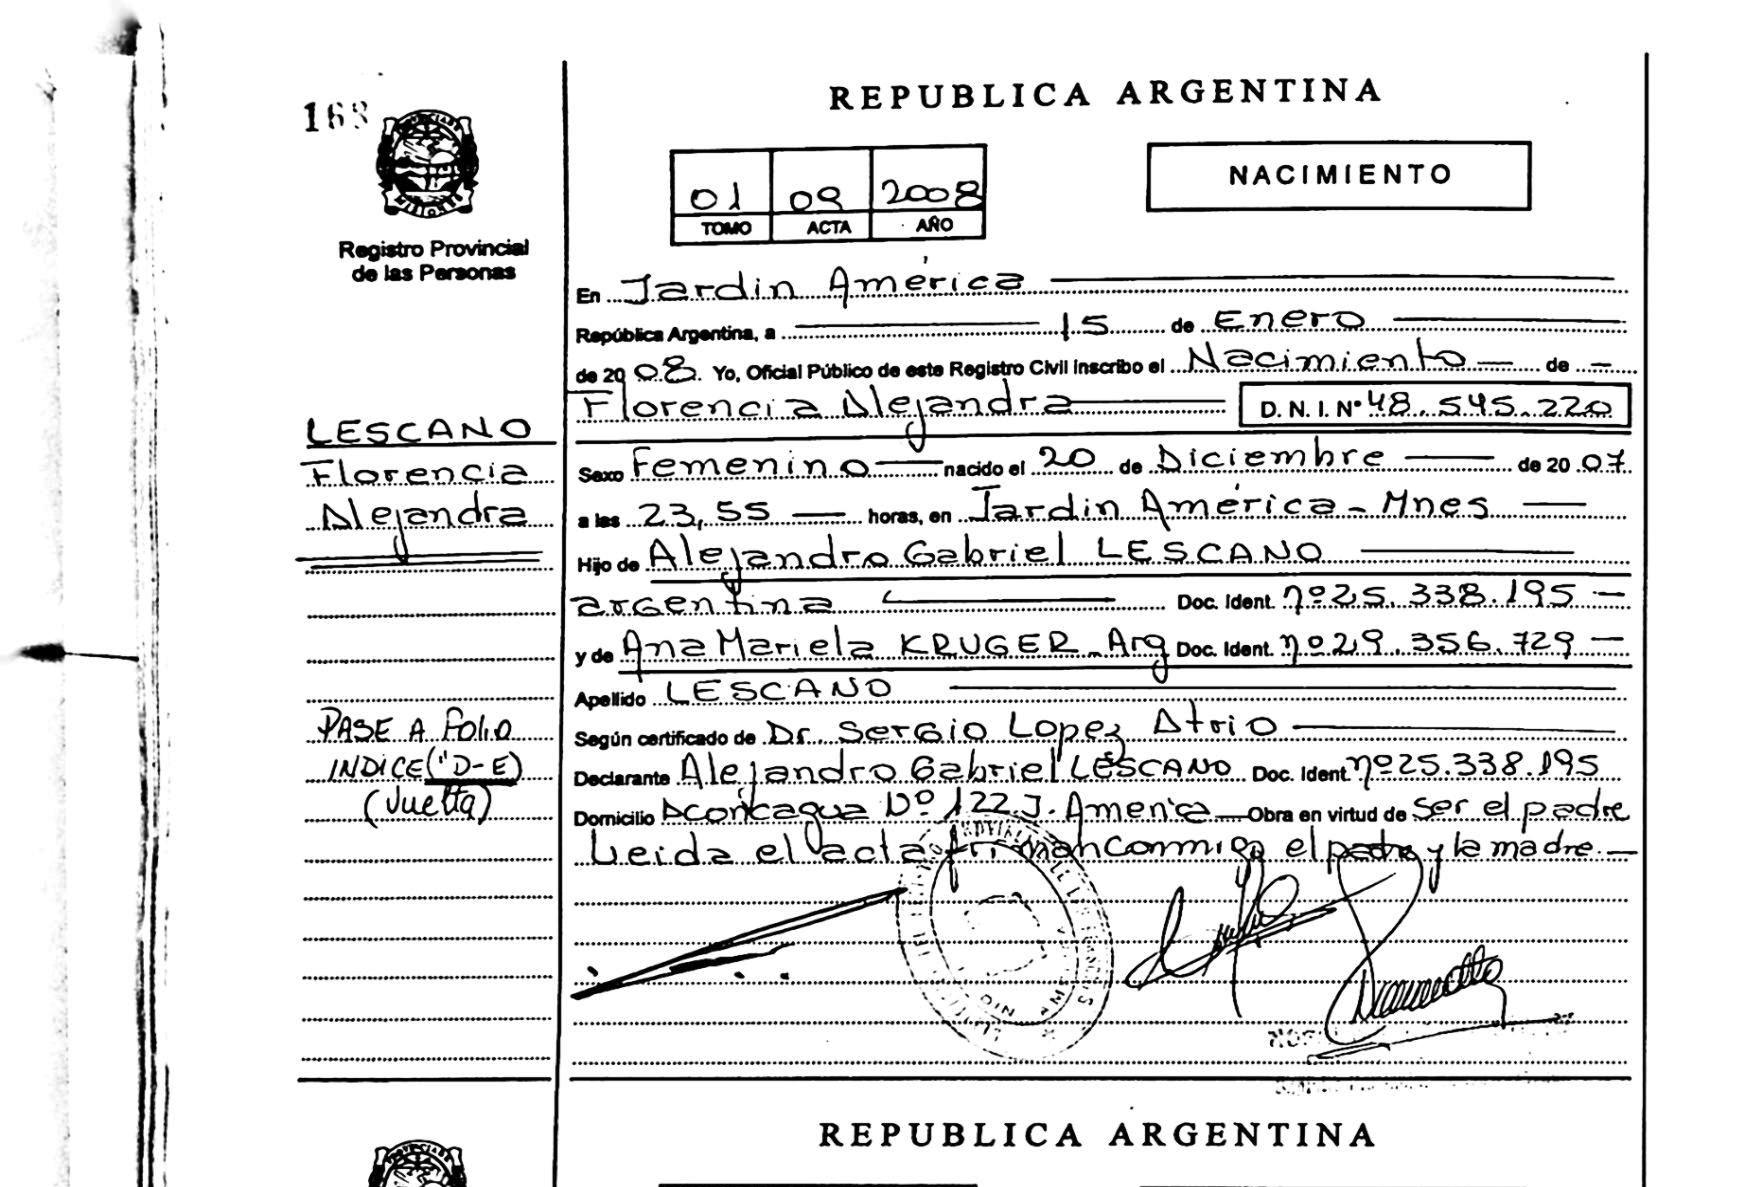 168
PROVINCIA DE
MISIONES
Registro Provincial
de las Personas
REPUBLICA ARGENTINA
01 09 2008
TOMO ACTA AÑO
NACIMIENTO
En Jardin América
República Argentina, a 15 de Enero
de 2008. Yo, Oficial Público de este Registro Civil inscribo el Nacimiento de
Florencia Alejandra D. N. I. Nº 48.545.220
Sexo Femenino nacido el 20 de Diciembre de 2007.
a las 23,55 horas, en Jardin América - Mnes
Hijo de Alejandro Gabriel LESCANO
argentina Doc. Ident. nº 25.338.195
y de Ana Mariela KRUGER - Arg Doc. Ident. nº 29.356.729
Apellido LESCANO
Según certificado de Dr. Sergio Lopez Atrio
Declarante Alejandro Gabriel LESCANO Doc. Ident. nº 25.338.195
Domicilio Aconcagua Nº 122 J. America Obra en virtud de ser el padre
Leida el acta firman conmigo el padre y la madre.
LESCANO
Florencia
Alejandra
PASE A FOLIO
INDICE ("D-E)
(Vuelta)
REPUBLICA ARGENTINA